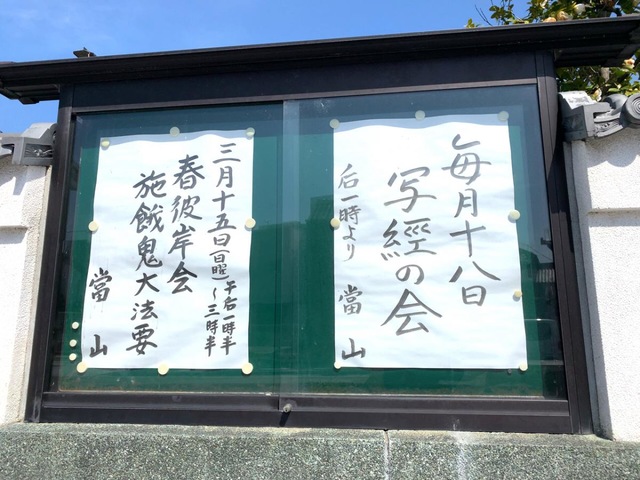 毎月十八日
写經の会
后一時より 當山
三月十五日(日曜)午后一時半~三時半
春彼岸会
施餓鬼大法要
當山